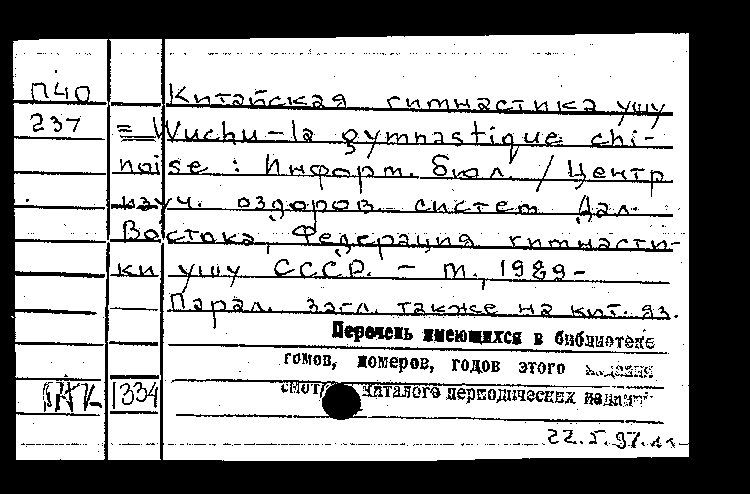 П40 Китайская гимнастика ушу
237 = Wuchu-la gymnastique chi-
noise : Информ. бюл. / Центр
изуч. оздоров. систем Дал.
Востока, Федерация гимнасти-
ки ушу СССР. - М., 1989-
Парал. загл. также на кит. яз.
Перечень имеющихся в библиотеке
томов, номеров, годов этого издания
смот каталоге периодических изданий
1334
22.5.97